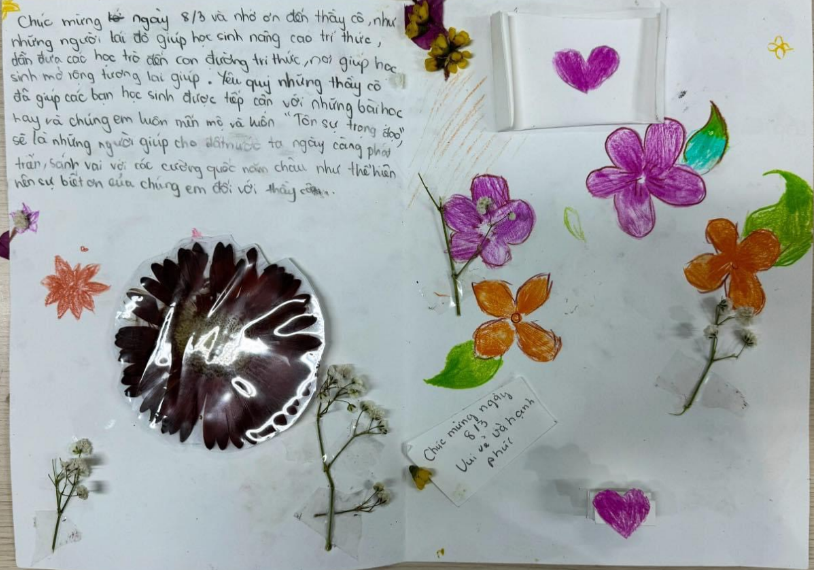 Chúc mừng ngày 8/3 và nhớ ơn đến thầy cô, như
những người lái đò giúp học sinh nâng cao tri thức,
dẫn đưa các học trò đến con đường tri thức, nơi giúp học
sinh mở rộng tương lai giúp. Yêu quý những thầy cô
đã giúp các bạn học sinh được tiếp cận với những bài học
hay và chúng em luôn mãi mê và luôn "Tôn sư trọng đạo",
sẽ là những người giúp cho đất nước ta ngày càng phát
triển, sánh vai với các cường quốc năm châu như thể hiện
nên sự biết ơn của chúng em đối với thầy cô.
Chúc mừng ngày
8/3
Vui vẻ và hạnh
phúc